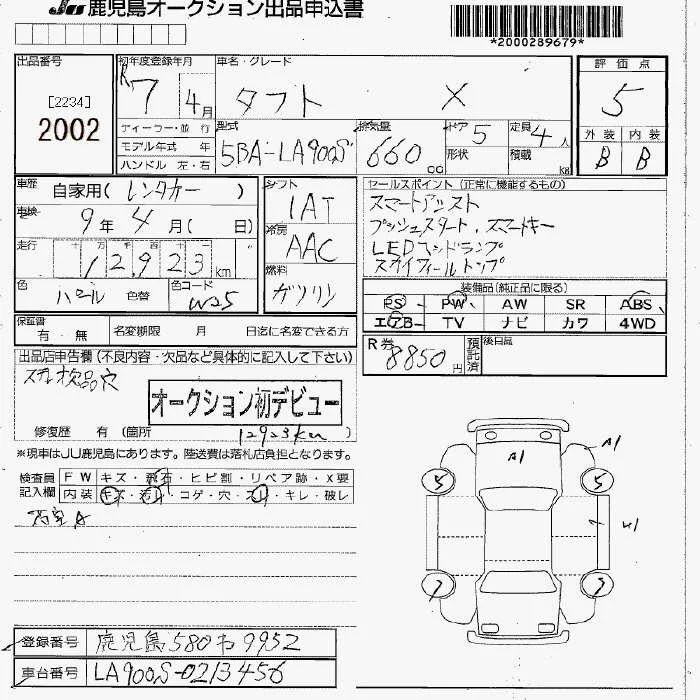 JU 鹿児島オークション出品申込書
*2000289679*
出品番号
[2234]
2002
初年度登録年月
R7 4月
ディーラー・並 行
モデル年式 年
ハンドル 左・右
車名・グレード
タフト X
型式
5BA-LA900S
排気量
660 cc
ドア 5
形状
定員 4人
積載 kg
評価点
5
外装 内装
B B
車歴
自家用(レンタカー)
車検
9年 4月(日)
走行
十 万 千 百 十 一
12923km
色
パール 色替
色コード
W25
シフト
IAT
冷房
AAC
燃料
ガソリン
セールスポイント(正常に機能するもの)
スマートアシスト
プッシュスタート、スマートキー
LEDヘッドランプ
スカイフィールトップ
装備品(純正品に限る)
PS PW AW SR ABS
エアB TV ナビ カワ 4WD
保証書
有・無
名変期限 月 日迄に名変できる方
R券
8850円
預託済
後日品
出品店申告欄(不良内容・欠品など具体的に記入して下さい)
スプレ欠品穴
オークション初デビュー
修復歴 有 (箇所 12923km )
※現車はJU鹿児島にあります。陸送費は落札店負担となります。
検査員記入欄
FW キズ・飛石・ヒビ割・リペア跡・X要
内装 キズ・汚れ・コゲ・穴・スレ・キレ・破レ
A1
A1
5 5
7
登録番号 鹿児島580わ9952
車台番号 LA900S-0213456